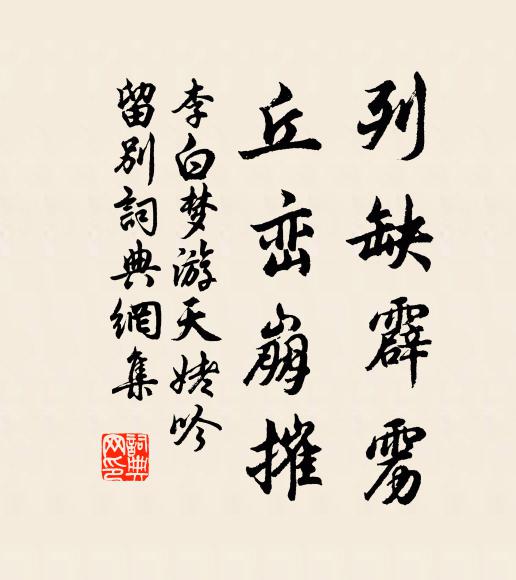 列缺霹雳
丘峦崩摧
李白梦游天姥吟
留别詞典網集
詞典
网印